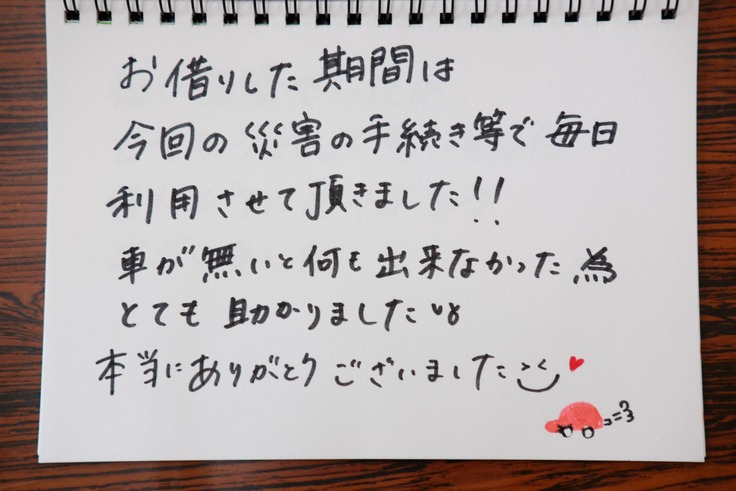 お借りした期間は
今回の災害の手続き等で毎日
利用させて頂きました!!
車が無いと何も出来なかった為
とても助かりました
本当にありがとうございました